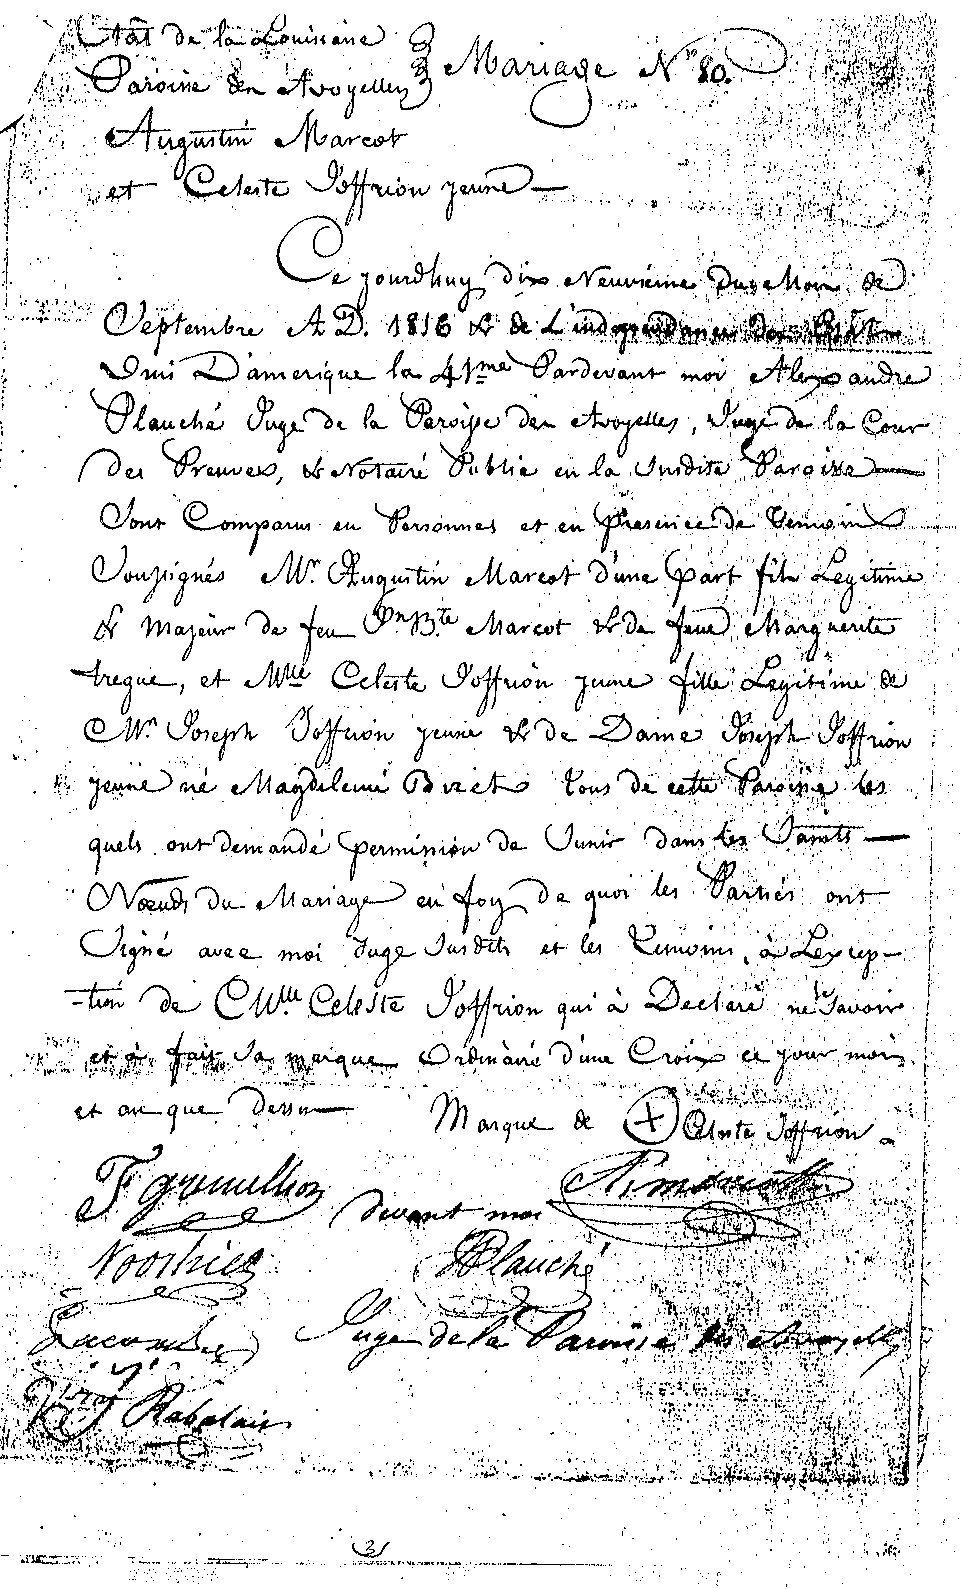 Etât de la Louisiane
Paroisse des Avoyelles
Mariage No 80.
Augustin Marcot
et Celeste Joffrion jeune —
Ce jourdhuy dix Neuvième du Mois de
Septembre A.D. 1816 & de L'independance des Etats
Unis D'amerique la 41me Pardevant moi Alexandre
Plauché Juge de la Paroisse des Avoyelles, Juge de la Cour
des Preuves, & Notaire Public en la Susdite Paroisse —
Sont Comparus en Personnes et en Presence de Temoins
Soussignés Mr. Augustin Marcot d'une part fils Legitime
& Majeur de feu Jn Bte Marcot & de feue Marguerite
tregue, et Mlle Celeste Joffrion jeune fille Legitime de
Mr. Joseph Joffrion jeune & de Dame Joseph Joffrion
jeune né Magdeleine tous de cette Paroisse les
quels ont demandé permission de S'unir dans les Saints —
Nœuds du Mariage en foy de quoi les Parties ont
Signé avec moi Juge Susdits et les Temoins, à Lexcep-
-tion de Mlle. Celeste Joffrion qui à Declaré ne le Savoir
et à fait Sa marque Ordinaire d'une Croix ce jour mois
et an que dessus — Marque de + Celeste Joffrion
F gremillion
devant moi
Voorhies
Plauché
Lacombe
Juge de la Paroisse des Avoyelles
Rabalais
3